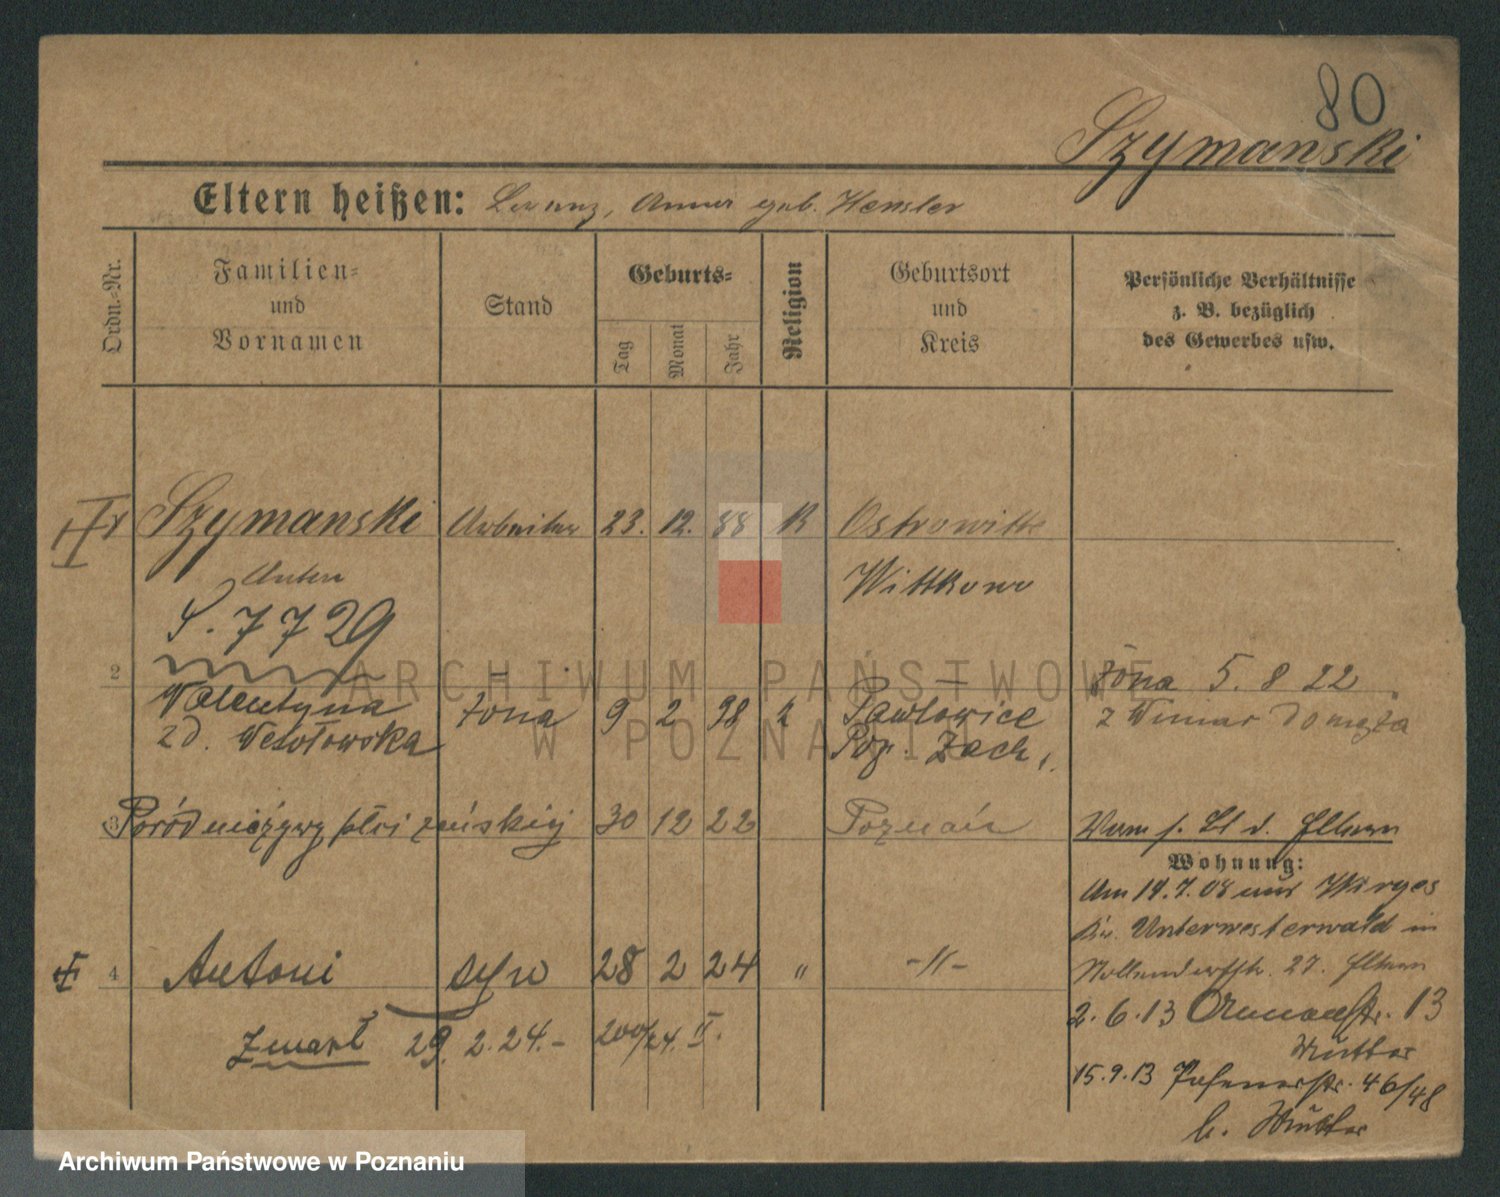 80
Szymanski
Eltern heißen: Lorenz, Anna geb. Hensler
Ordn.-Nr.
Familien-
und
Vornamen
Stand
Geburts-
Tag
Monat
Jahr
Religion
Geburtsort
und
Kreis
Persönliche Verhältnisse
z. B. bezüglich
des Gewerbes usw.
Szymanski Arbeiter 23. 12. 88 K Ostrowitte
Anton Wittkowo
S. 7729
2 Walentyna żona 9 2 98 k Pawłowice żona 5. 8 22
zd. Wesołowska Poz. Zach. z Winiar do męża
3 Poród nieżywy płci żeńskiej 30 12 22 Poznań
Wohnung:
Am 14.7.08 aus Wirges
Kr. Unterwesterwald in
27. Eltern
4 Antoni syn 28 2 24 " -"-
2.6.13 13
Mutter
Zmarł 29. 2. 24.- 200/24 II.
15.9.13 Posenerstr. 46/48
b. Mutter
ARCHIWUM PAŃSTWOWE
W POZNANIU
Archiwum Państwowe w Poznaniu